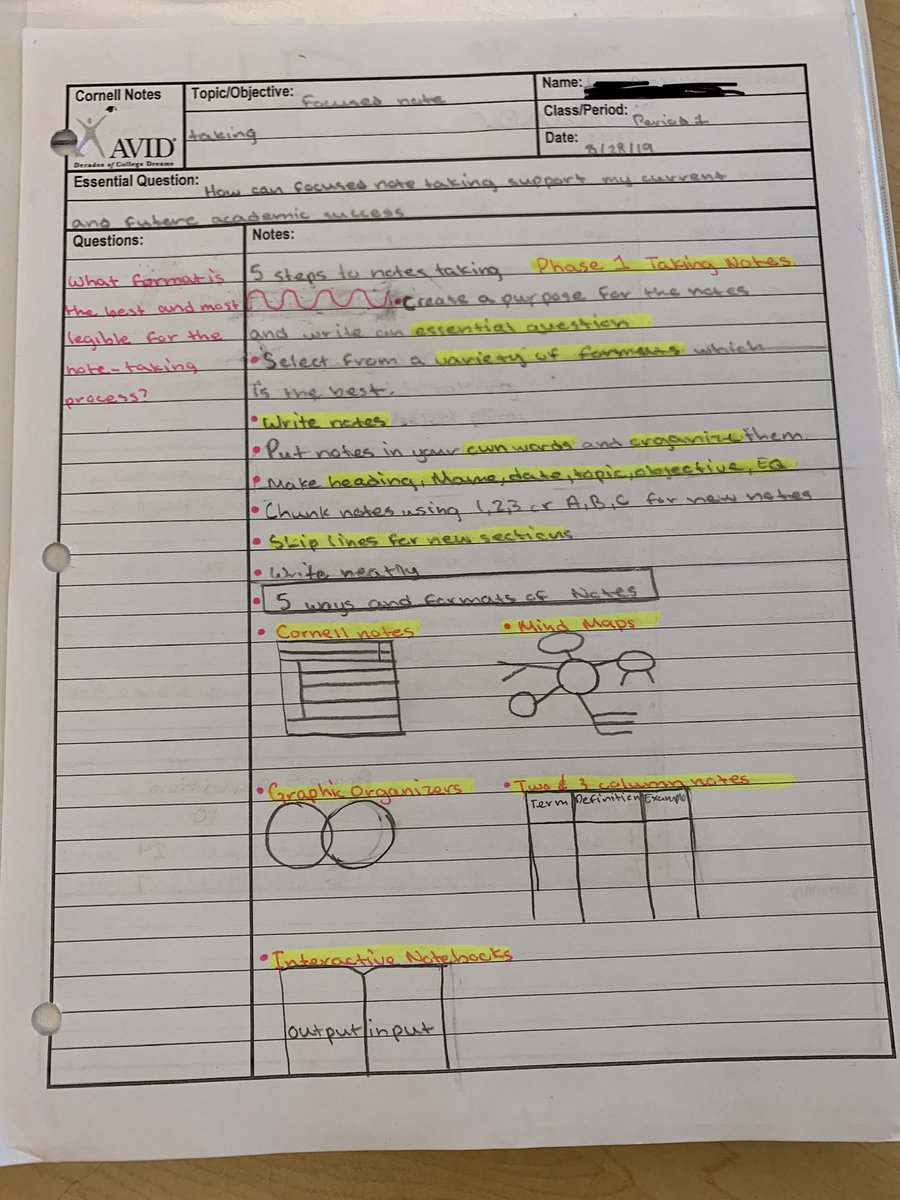 Cornell Notes
AVID®
Decades of College Dreams
Topic/Objective: Focused note
taking
Name:
Class/Period: Period 1
Date: 8/28/19
Essential Question: How can focused note taking support my current
and future academic success
Questions:
What format is
the best and most
legible for the
note-taking
process?
Notes:
5 steps to notes taking Phase 1 Taking Notes
• Crease a purpose for the notes
and write an essential question
• Select from a variety of formats which
is the best.
• Write notes
• Put notes in your own words and organize them
• Make heading, Name, date, topic, objective, EQ
• Chunk notes using 1,2,3 or A,B,C for new notes
• Skip lines for new sections
• Write neatly
• 5 ways and formats of Notes
• Cornell notes
• Mind Maps
• Graphic Organizers
• Two & 3 column notes
Term Definition Example
• Interactive Notebooks
output input